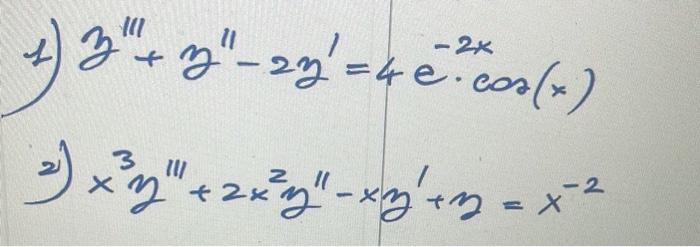 1) y''' + y'' - 2y' = 4e^{-2x}·cos(x)
2) x³y''' + 2x²y'' - xy' + y = x^{-2}